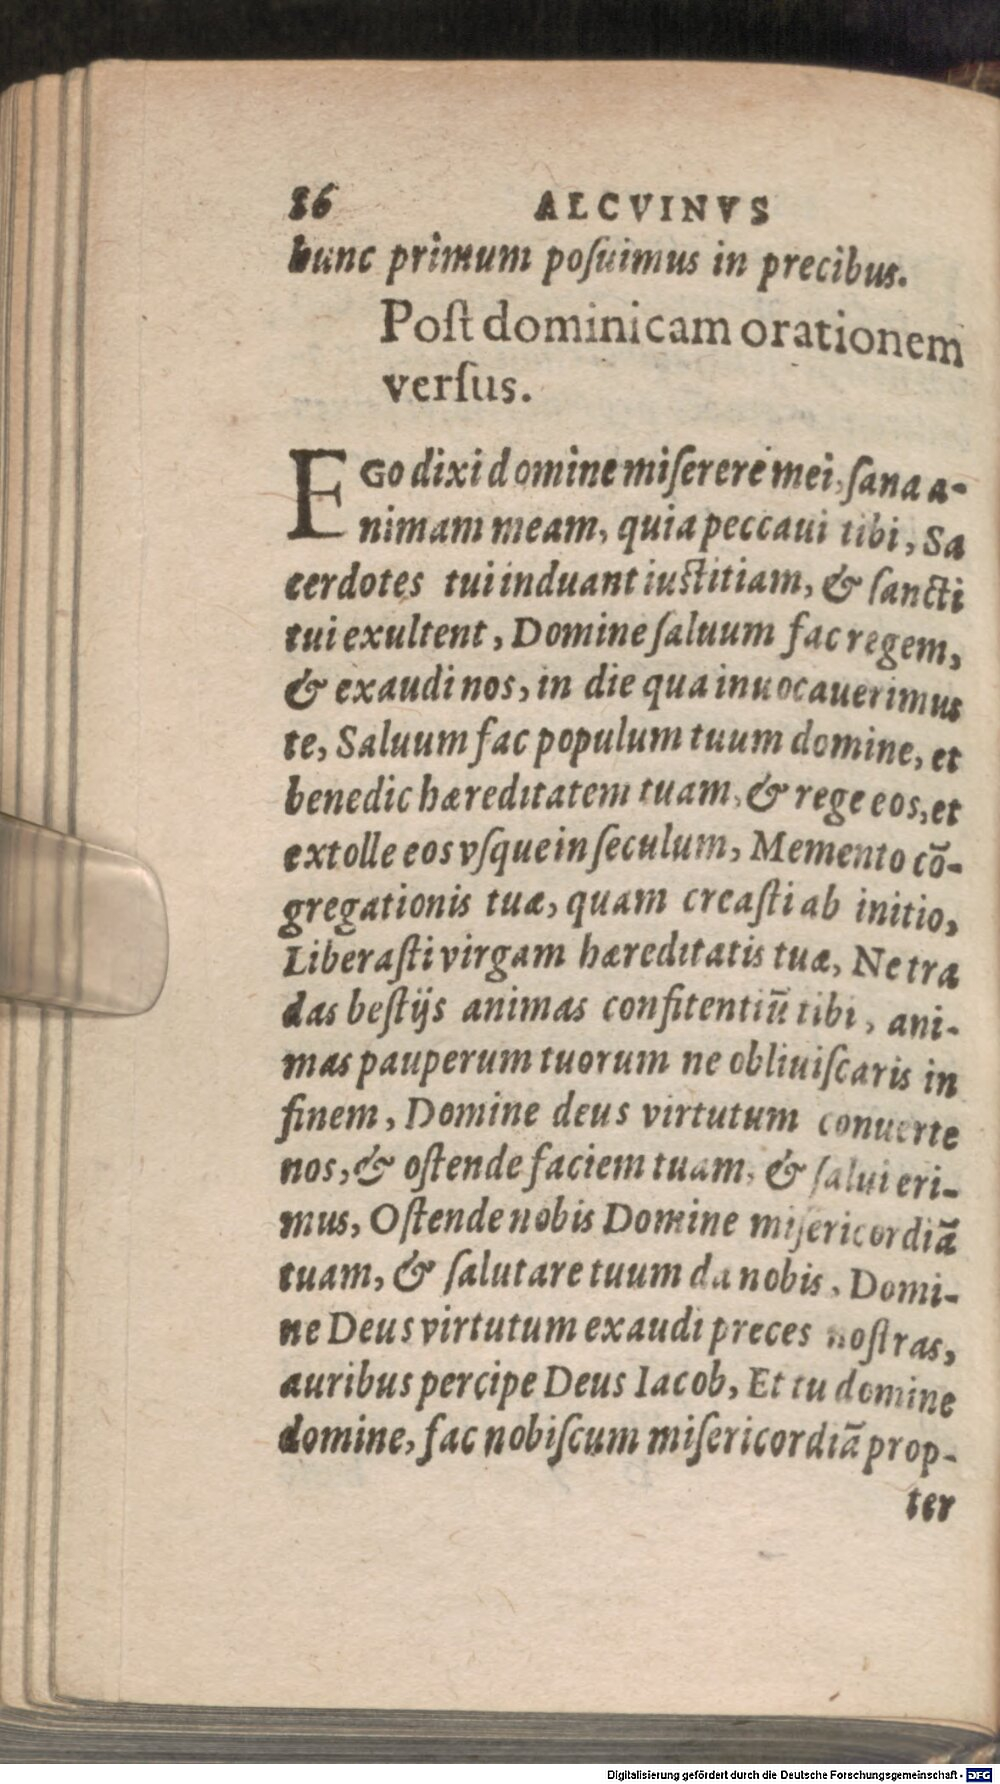 86 ALCVINVS
hunc primum poſuimus in precibus.
Poſt dominicam orationem
verſus.
EGo dixi domine miſerere mei, ſana a-
nimam meam, quia peccaui tibi, Sa
cerdotes tui induant iuſtitiam, & ſancti
tui exultent, Domine ſaluum fac regem,
& exaudi nos, in die qua inuocauerimus
te, Saluum fac populum tuum domine, et
benedic hæreditatem tuam, & rege eos, et
extolle eos vſque in ſeculum, Memento cō-
gregationis tuæ, quam creaſti ab initio,
Liberaſti virgam hæreditatis tuæ, Ne tra
das beſtijs animas confitentiū tibi, ani-
mas pauperum tuorum ne obliuiſcaris in
finem, Domine deus virtutum conuerte
nos, & oſtende faciem tuam, & ſalui eri-
mus, Oſtende nobis Domine miſericordiā
tuam, & ſalutare tuum da nobis, Domi-
ne Deus virtutum exaudi preces noſtras,
auribus percipe Deus Iacob, Et tu domine
domine, fac nobiſcum miſericordiā prop-
ter
Digitalisierung gefördert durch die Deutsche Forschungsgemeinschaft - DFG